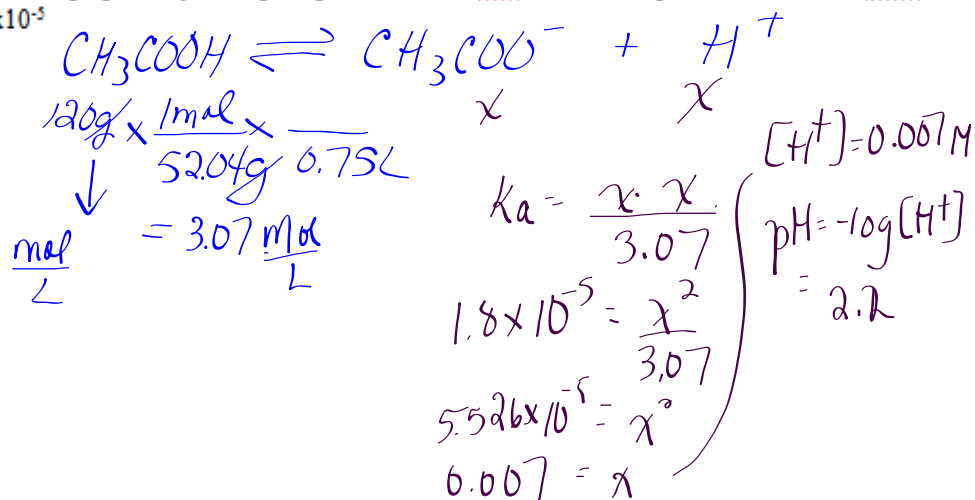 x10⁻⁵
CH₃COOH ⇌ CH₃COO⁻ + H⁺
x x
120g × 1mol/52.04g × —/0.75L
↓
mol/L
= 3.07 mol/L
Ka = x · x/3.07
1.8 x 10⁻⁵ = x²/3.07
5.526 x 10⁻⁵ = x²
0.007 = x
[H⁺] = 0.007 M
pH = -log[H⁺]
= 2.2